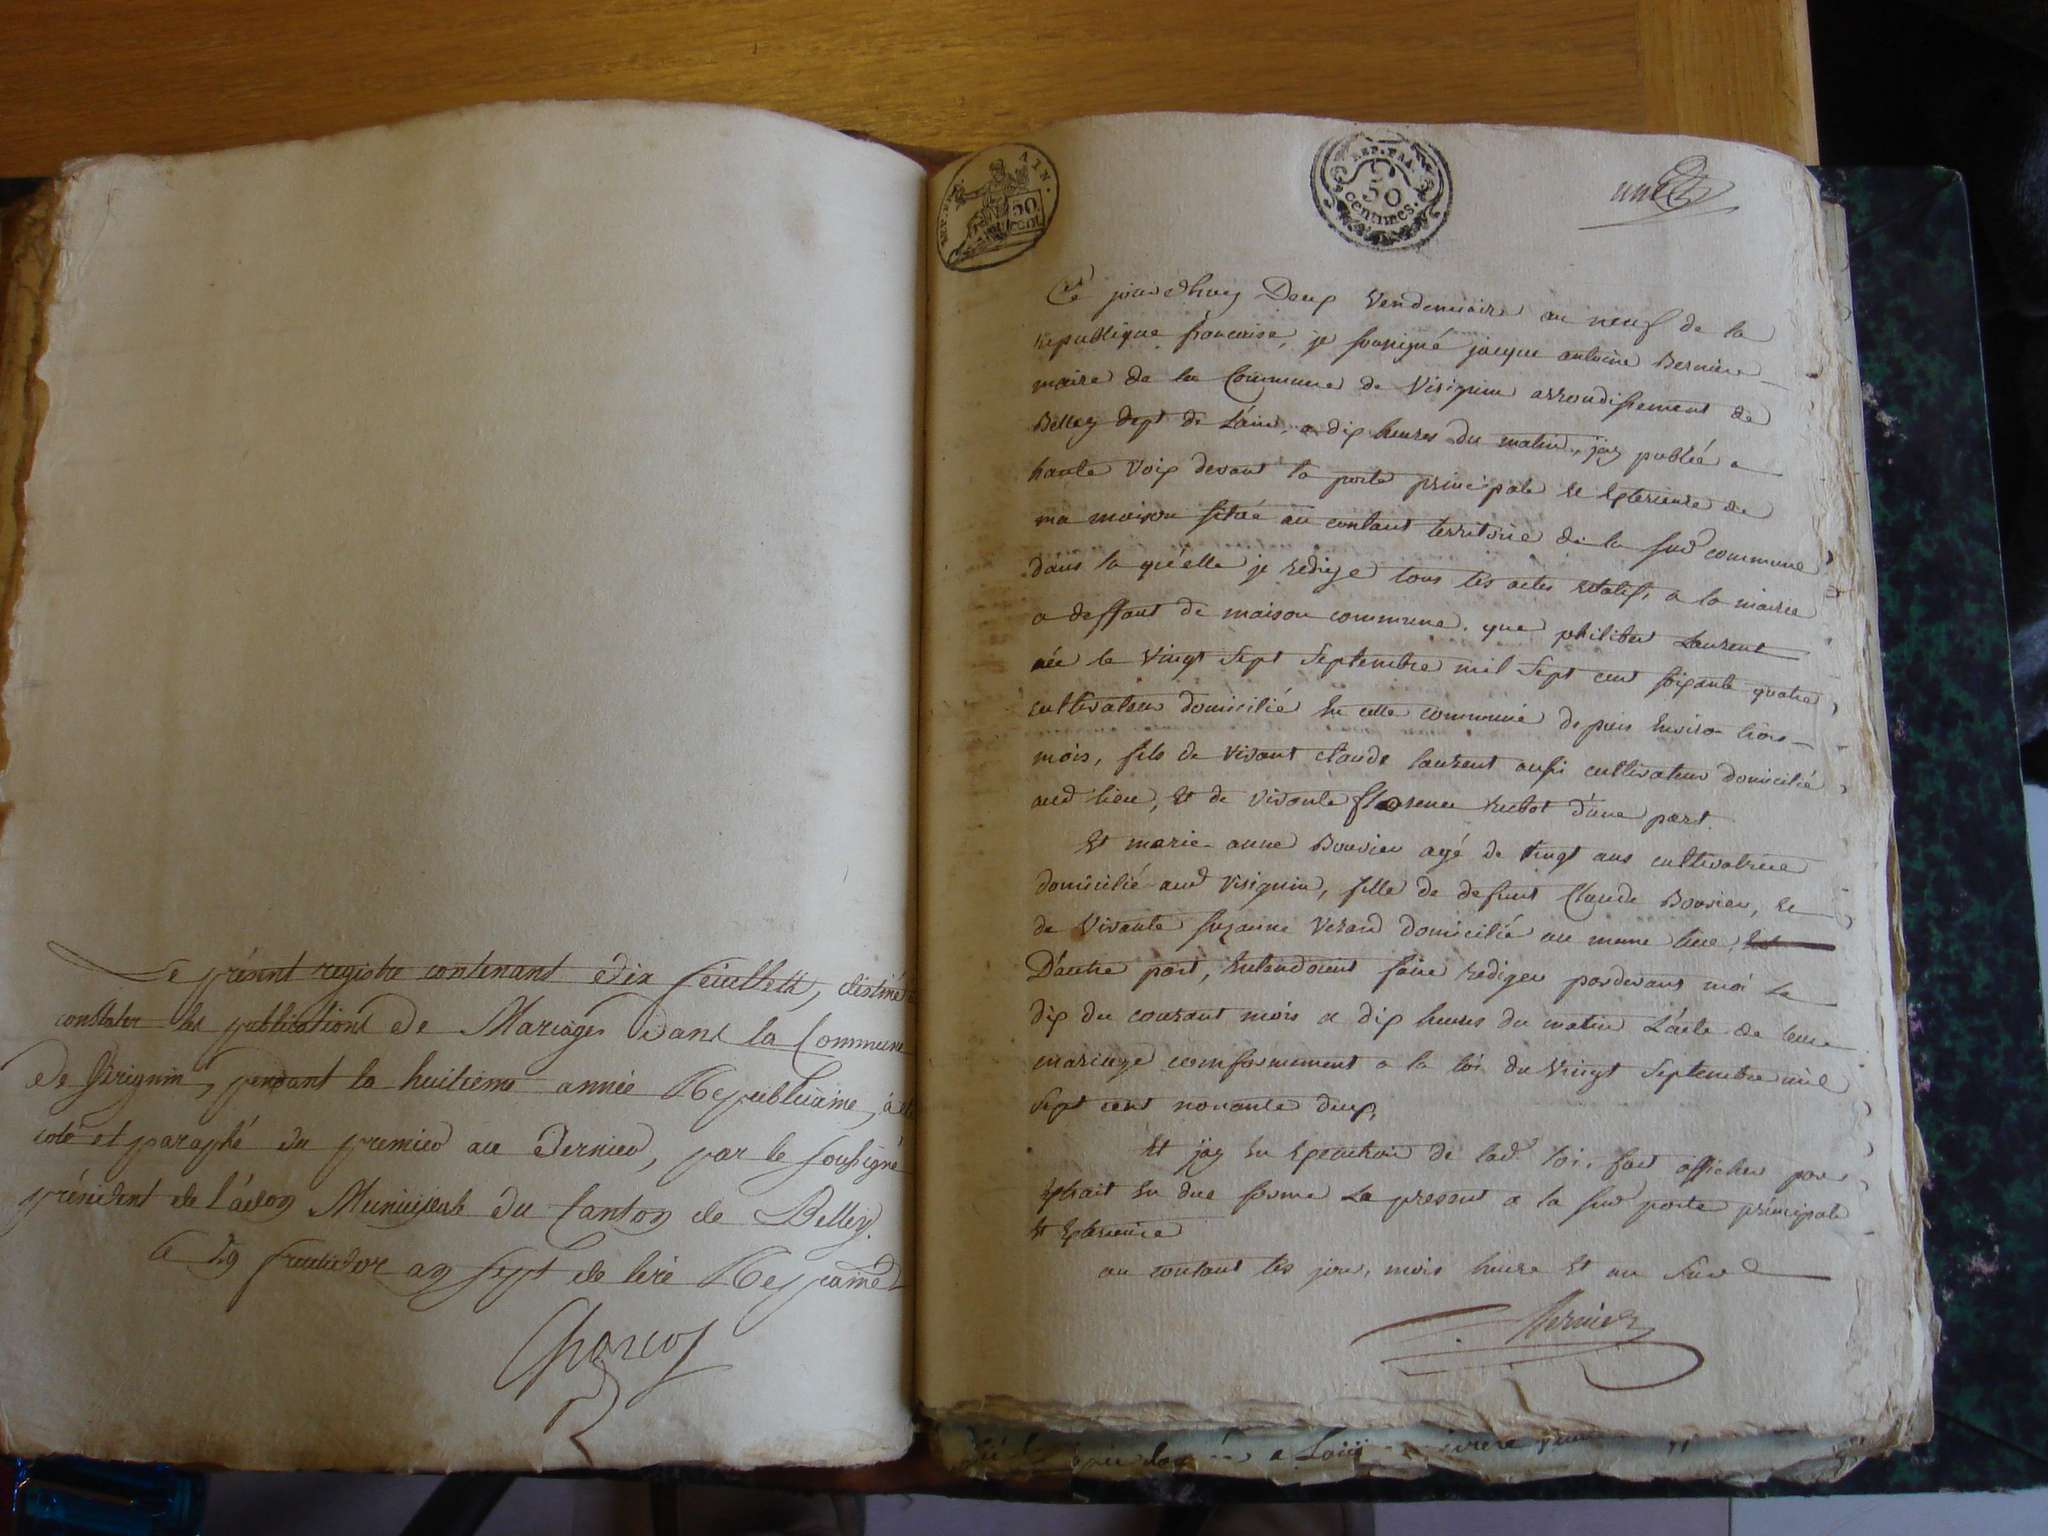 Le présent registre contenant dix feuillets, destiné à
constater les publications de Mariages dans la Commune
de Virignin, pendant la huitieme année Republicaine, a été
coté et paraphé du premier au dernier, par le soussigné
président de l'adon Municipale du Canton de Belley.
le dix fructidor an sept de l'ere Repcaine
REP. FRA. AIN.
50 cent
REP. FRA.
50
centimes.
un
Ce jourdhuy Deux Vendemiaire an neuf de la
republique francaise, je soussigné jacque antoine Bernier
maire de la Commune de Virignin arrondissement de
Belley dept de L'ain, a dix heures du matin, jay publié a
haute voix devant la porte principale et Exterieure de
ma maison situé au contant territoire de la sud commune
dans la quelle je redige tous les actes relatifs a la mairie
a deffaut de maison commune. que philibert Laurent
née le Vingt Sept Septembre mil Sept cent soixante quatre
cultivateur domicilié en cette commune depuis environ trois
mois, fils de vivant claude laurent aussi cultivateur domicilié
aud lieu, et de vivante florence d'une part.
Et marie anne Bouvier agé de vingt ans cultivatrice
domicilié aud virignin, fille de defunt Claude Bouvier, et
de Vivante suzanne domicilié au meme lieu
D'autre part, entendoient faire rediger pardevant moi le
dix du courant mois a dix heures du matin L'acte de leur
mariage conformement a la loi du Vingt Septembre mil
Sept cent nonante deux.
Et jay en Execution de lad. loi, fait afficher par
extrait en due forme La present a la sud porte principale
et Exterieure
au contant les jour, mois heure Et an Sud
Bernier